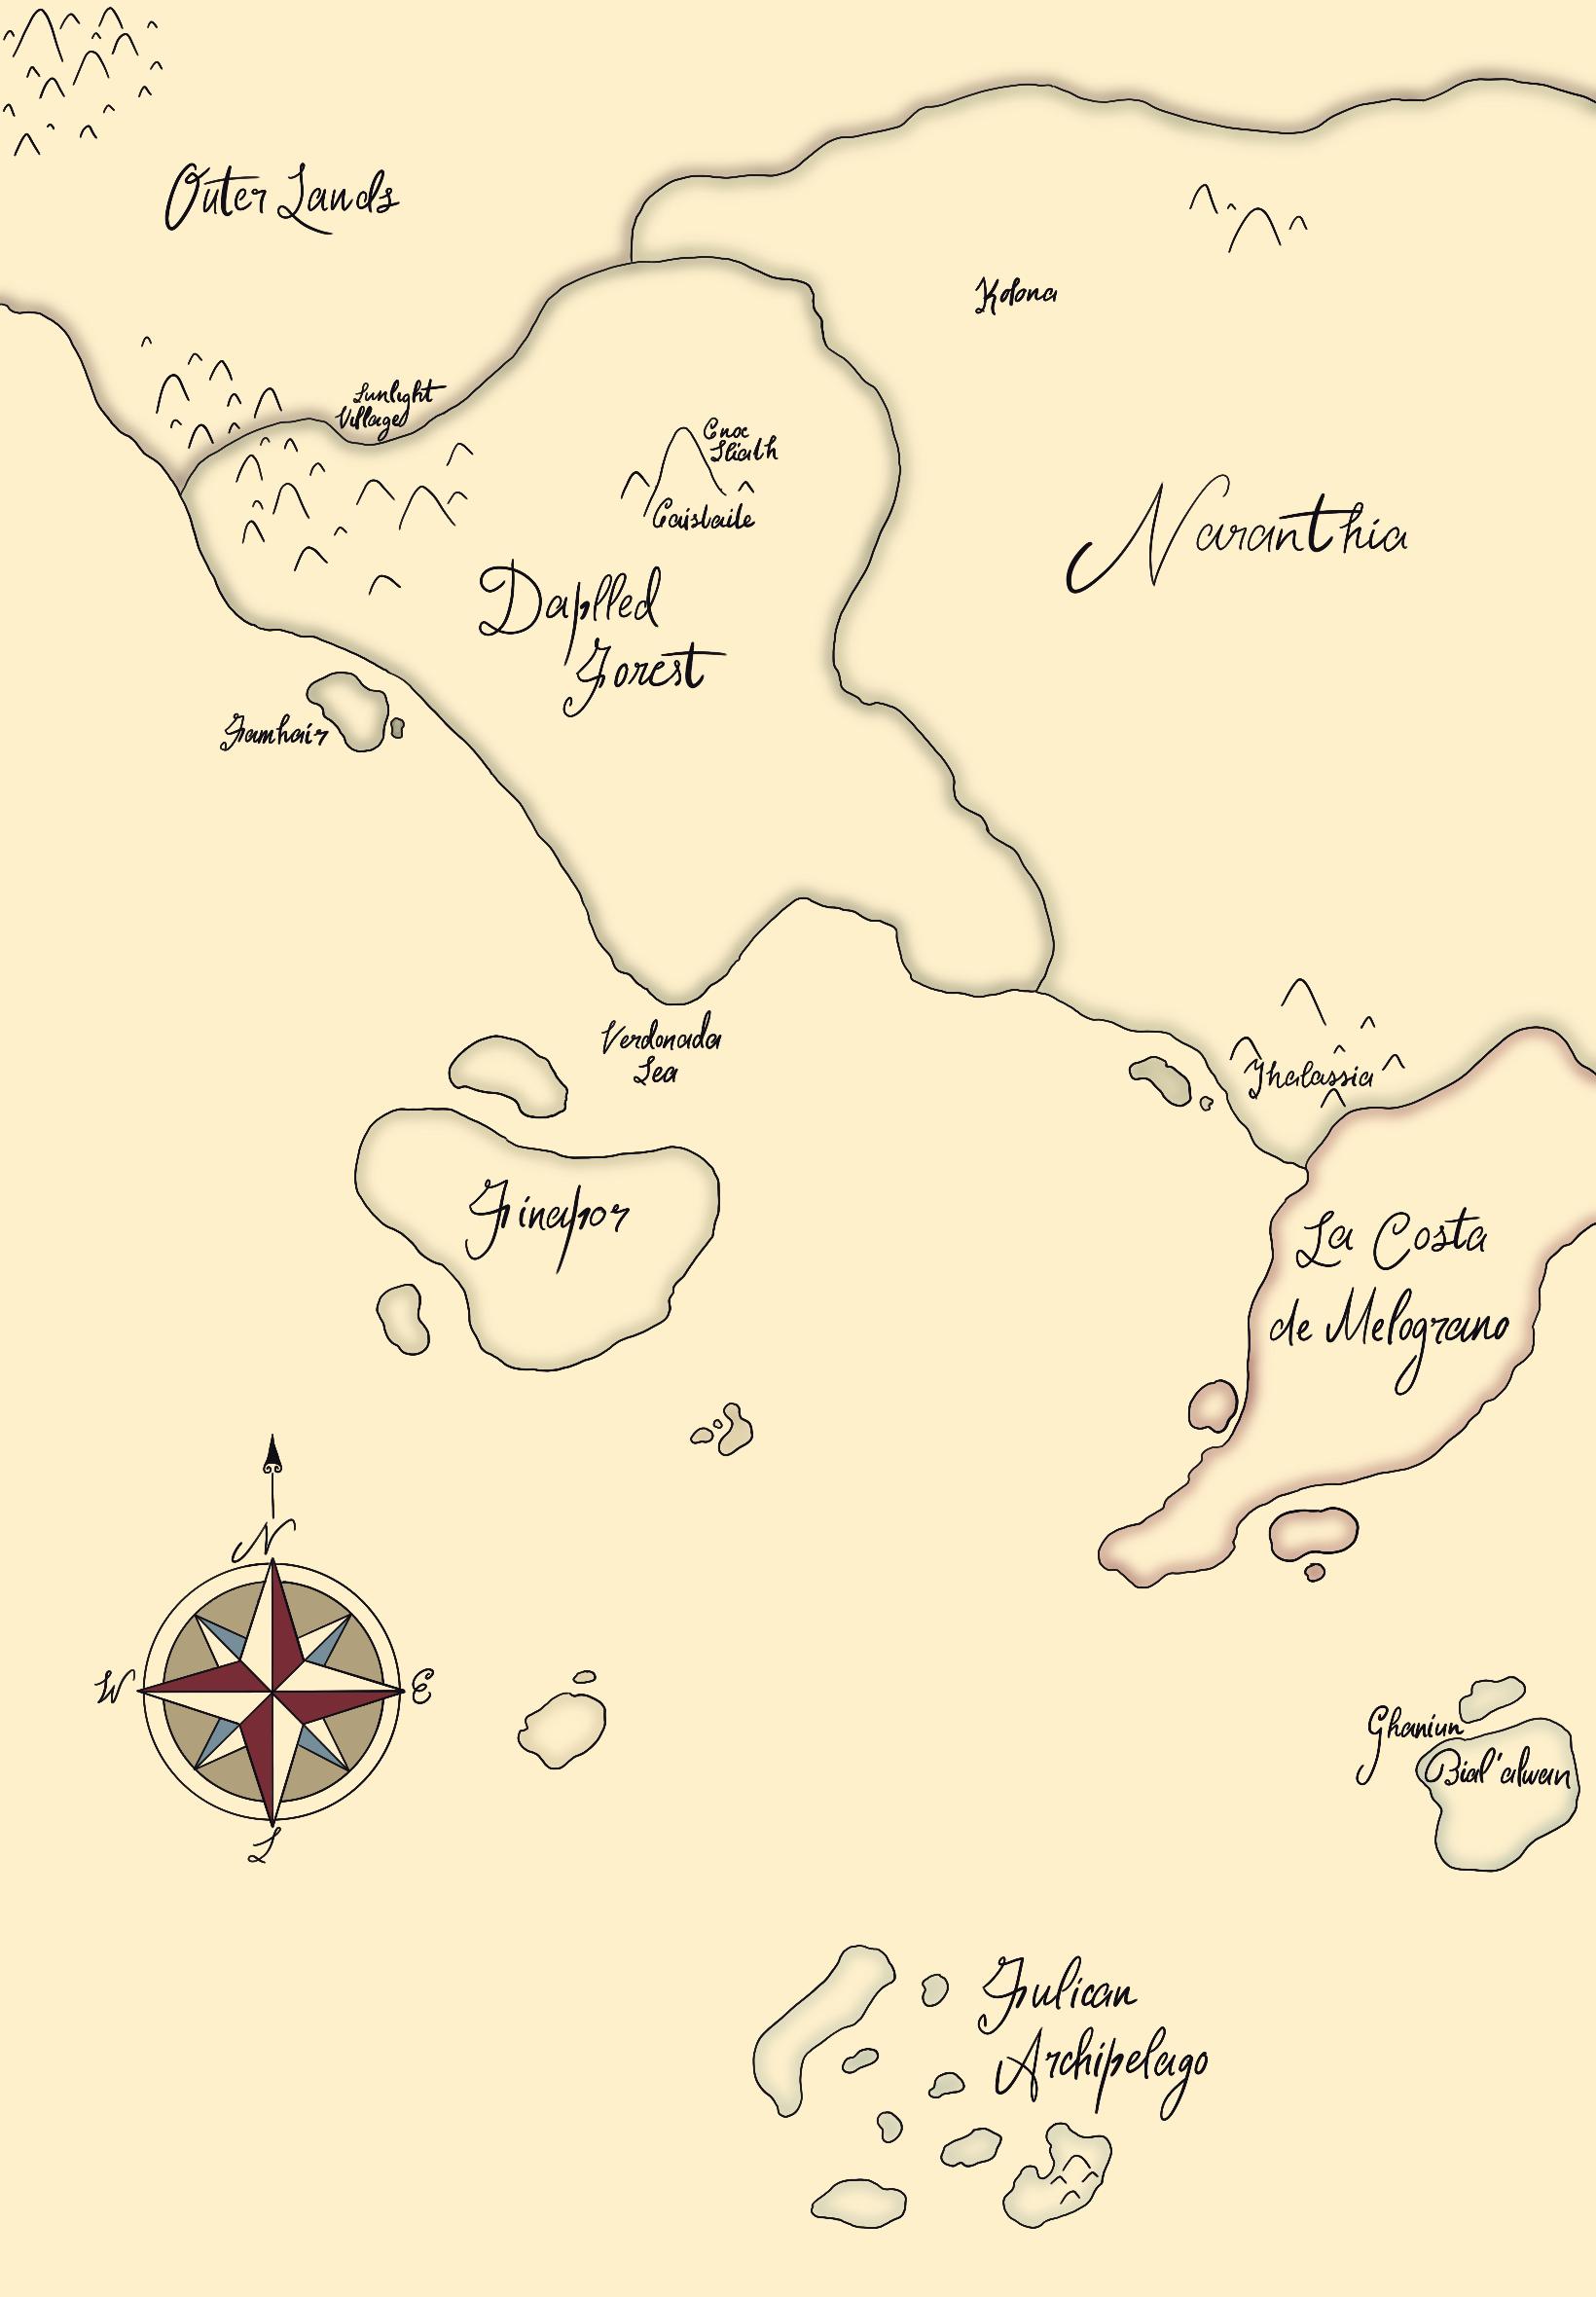 Outer Lands
Kolona
Sunlight
Villages
Cnoc
Sliath
Caisbaile
Naranthia
Daplled
Forest
Famhair
Verdonada
Sea
Thalassia
Finapor
La Costa
de Melograno
N
W
E
S
Ghaniun
Bial'alwan
Fulican
Archipelago